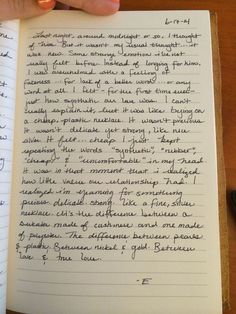 6-17-21
Last night, around midnight or so, I thought
of him. But it wasn't my usual thought... it
was new. Some strange emotion I'd not
really felt before. Instead of longing for him,
I was overwhelmed with a feeling of
for lack of a better word... or any
word at all. I felt - for the first time ever -
just how synthetic our love was. I can't
really explain it, but it was like trying on
a cheap, plastic necklace. It wasn't precious
It wasn't delicate yet strong, like nice
silver. It felt... cheap. I just kept
repeating the words "synthetic", "rubber",
"cheap" & "uncomfortable" in my head.
It was in that moment that I realized
how little value our relationship had. I
realized I'm yearning for something
precious. delicate. strong. like a fine, silver
necklace. It's the difference between a
sweater made of cashmere and one made
of polyester. The difference between pearls
& plastic. Between nickel & gold. Between
love & true love.
-E